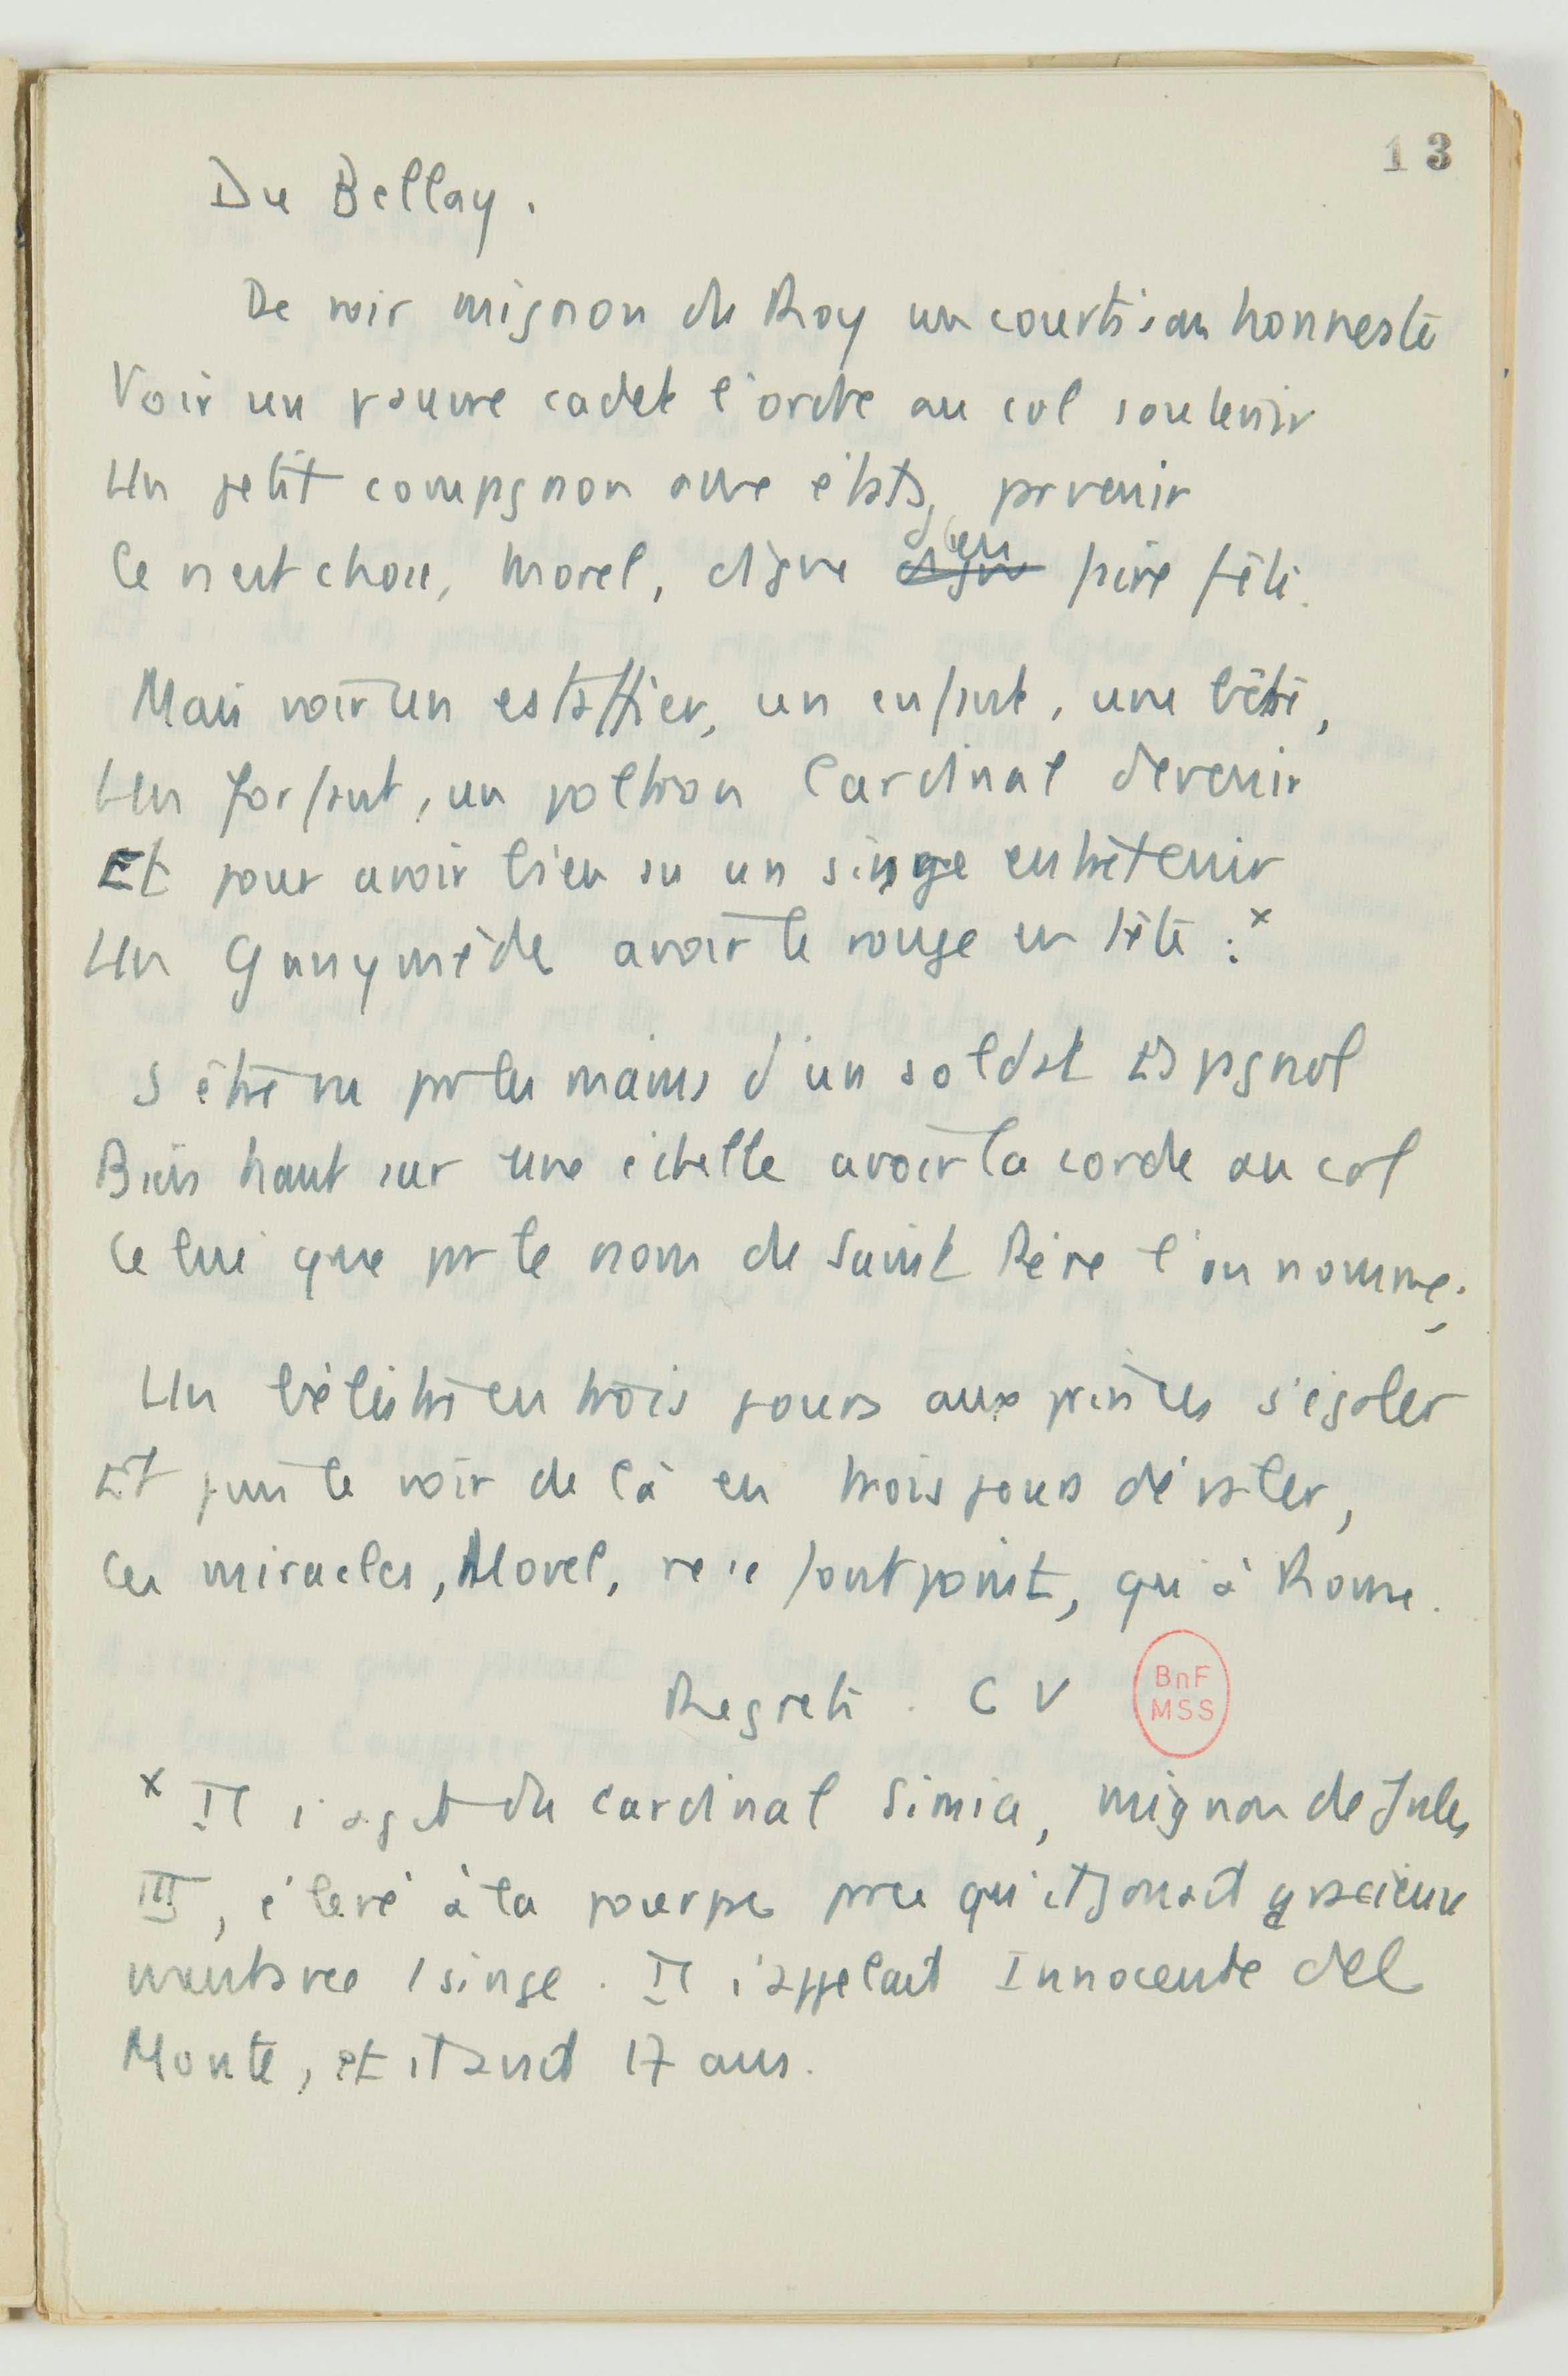 13
Du Bellay.
De voir mignon du Roy un courtisan honneste
Voir un pauvre cadet l'ordre au col soutenir
Un petit compagnon aux états parvenir
Ce n'est chose, Morel, digne d'en faire fête.
Mais voir un estaffier, un enfant, une bête,
Un forfant, un poltron Cardinal devenir
Et pour avoir bien su un singe entretenir
Un Ganymède avoir le rouge en tête : x
S'être vu par les mains d'un soldat Espagnol
Bien haut sur une échelle avoir la corde au col
Celui que par le nom de Saint Père l'on nomme;
Un bélistre en trois jours aux princes s'égaler
Et puis le voir de là en trois jours dévaler,
Ces miracles, Morel, ne se font point, qu'à Rome.
Regrets. CV
BnF
MSS
x Il s'agit du cardinal Simia, mignon de Jules
III, élevé à la pourpre parce qu'il jouait gracieux
avec 1 singe. Il s'appelait Innocente del
Monte, et il avait 17 ans.